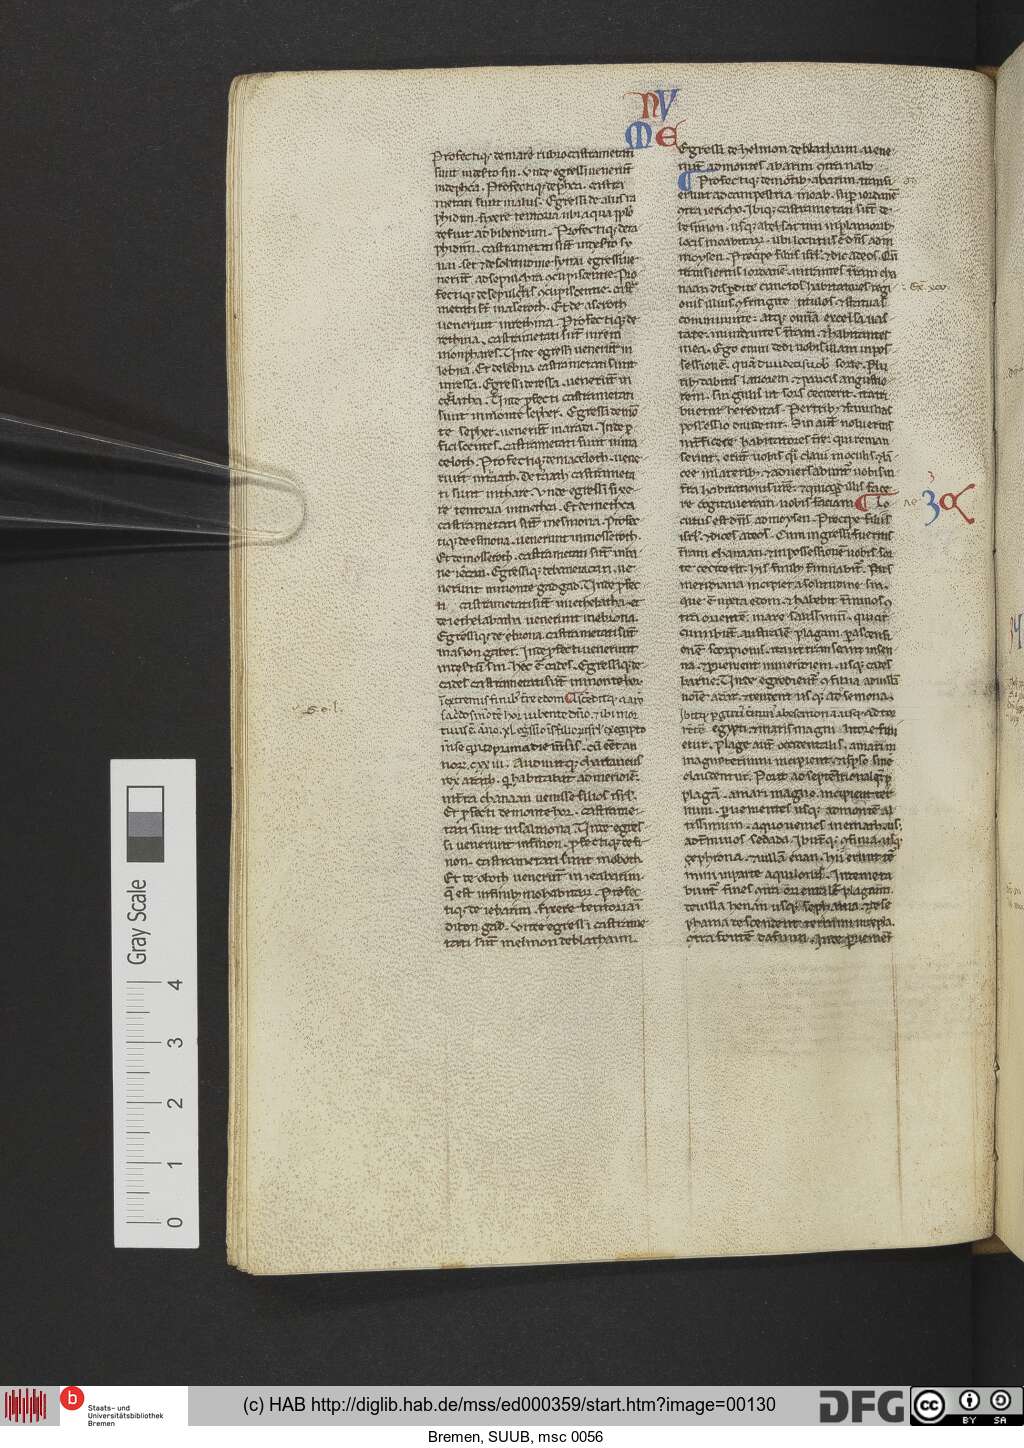 NV
ME
Profectiq; de mari rubro castrametati
sunt in deſto sin. Vnde egressi venerūt
in dephca. Profectiq; de phca. castra
metati sunt in alus. Egressi de alus ra
phidim fixere tentoria ubi aqua pplo
defuit ad bibendum. Profectiq; de ra
phidim. castrametati sūt in deſto sy
nai. set & de solitudine synai egressi ue
nerūt ad sepulchra ꝯcupiscentie. Pro
fectiq; de sepulcris ꝯcupiscentie. castᵃ
metati sūt in aseroth. Et de aseroth
uenerunt in rethma. Profectiq; de
rethma. castrametati sūt in rem
monphares. Unde egressi uenerūt in
lebna. Et de lebna castrametati sunt
in ressa. Egressi de ressa. uenerūt in
celatha. Unde pfecti castrametati
sunt in monte sepher. Egressi de mō
te sepher. uenerūt in arada. Inde p
ficiscentes. castrametati sunt in ma
celoth. Profectiq; de maceloth. uene
runt in thaath. De thaath castrameta
ti sunt in thare. Vnde egressi fixe
re tentoria in methca. Et de methca
castrametati sūt in esmona. Profec
tiq; de esmona. uenerunt in moseroth.
Et de moseroth. castrametati sūt in ba
neiacan. Egressiq; de baneiacan. ue
nerunt in monte gadgad. Unde pfec
ti castrametati sūt in iethebatha. et
de iethebatha uenerunt in ebrona.
Egressiq; de ebrona. castrametati sūt
in asiongaber. Inde pfecti uenerunt
in deſtū sin. hec ē cades. Egressiq; de
cades castrametati sūt in monte hor
in extremis finib; tre edom. Ascenditq; aarō
sacerdos in mōte hor iubente dño. & ibi mor
tuus ē. anno .xl. egssiōis filiorū isrl ex egipto
mse quinto prima die msis. cū eēt an
norū. cxxiii. Audiuitq; chananeus
rex arad. q̄ habitabat ad meridiē.
in tra chanaan uenisse filios isrl.
Et pfecti de monte hor. castrame
tati sunt in salmona. Unde egres
si uenerunt in finon. pfectiq; de fi
non. castrametati sunt in oboth.
Et de oboth uenerūt in ieabarim.
q̄ est in finib; moabitarū. Profec
tiq; de iebarim. fixere tentoria in
dibon gad. Vnde egressi castrame
tati sūt in elmon deblathaim.
Egressi de helmon deblathaim. uene
runt ad montes abarim ꝯtra nabo.
Profectiq; de mōtib; abarim. transi
erunt ad campestria moab. sup iordanē
ꝯtra iericho. Ibiq; castrametati sūt de
bethsimon. usq; abelsattim in planiorib;
locis moabitarū. ubi locutus ē dns ad m
moysen. Precipe filiis isrl. & dic ad eos. Qñ
transieritis iordanē. intrantes tram cha
naan dispdite cunctos habitatores regi
onis illius. ꝯfringite titulos. & statuas
comminuite. atq; omia excelsa uas
tate. mundantes tram. & habitantes
in ea. Ego enim dedi uobis illam in pos
sessionē. quā diuidetis uobis sorte. Plu
rib; dabitis latiorem. & paucis angustio
rem. singulis ut sors ceciderit. ita tri
buetur hereditas. Per trib; & familias
possessio diuidetur. Sin autē nolueritis
interficere habitatores tre: qui reman
serint. erūt uobis qsi claui in oculis. & lā
cee in laterib;. & aduersabuntᵘ uobis in
tra habitationis ure. & quicqd illis face
re cogitaueram uobis faciam. Lo
cutus est dns ad moysen. Precipe filiis
isrl. & dices ad eos. Cum ingressi fueritis
tram chanaan. & in possessionē uobis sor
te ceciderit. his finib; tminabitᵘ. Pars
meridiana incipiet a solitudine sin.
que ē iuxta edom. & habebit tminos ꝯ
tra orientē. mare salsissimū. qui cir
cuibunt australē plagam. p ascensū
onē scorpionis. ita ut transeant in sen
na. & pueniant in meridiem. usq; cades
barne. Unde egredientᵘ ꝯfinia ad uillā
noie adar. & tendent usq; ad semona.
Ibitq; p girū tminus ab esemona usq; ad tor
rētē egypti. & maris magni litore fini
etur. Plaga autē occidentalis. a mari
magno tminum incipiet. & ipso fine
claudetur. Porro ad septētrionalē
plagā. a mari magno incipient ter
mini. puenientes usq; ad montē al
tissimum. a quo uenies in emath. usq;
ad tminos sedada. Ibuntq; ꝯfinia. usq;
zephrona. & uillā enan. hii erunt t
mini in parte aquilonis. Inde meta
bunt fines ꝯtra orientalē plagam.
de uilla henan usq; sephama. & de se
phama descendent termini in rebla.
ꝯtra fontē dafnim. Inde puenient
s. e. l.
Ex. xxv.
Gray Scale
4
3
2
1
0
b
Staats- und
Universitätsbibliothek
Bremen
(c) HAB http://diglib.hab.de/mss/ed000359/start.htm?image=00130
DFG
cc
BY SA
Bremen, SUUB, msc 0056